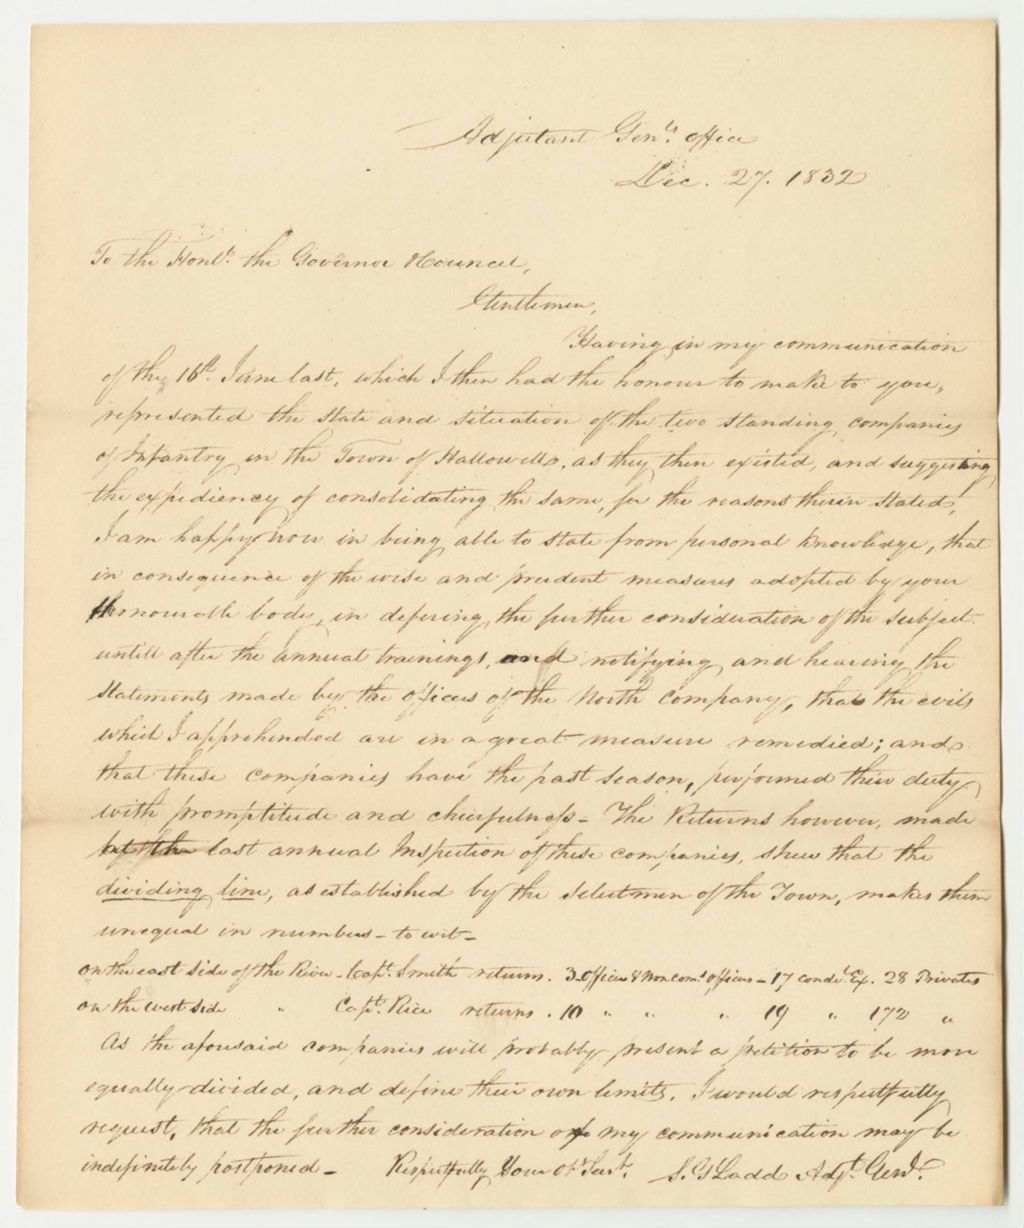 Adjutant Genls office
Dec. 27. 1832
To the Honle. the Governor & Council,
Gentlemen,
Having in my communication
of the 16th June last, which I then had the honour to make to you,
represented the state and situation of the two standing companies
of Infantry in the Town of Hallowell, as they then existed, and suggesting
the expediency of consolidating the same, for the reasons therein stated,
I am happy now in being able to state from personal knowledge, that
in consequence of the wise and prudent measures adopted by your
Honourable body, in defering the further consideration of the subject
untill after the annual trainings, and notifying and hearing the
statements made by the officers of the North Company, that the evils
which I apprehended are in a great measure remedied; and
that these companies have the past season, performed their duty
with promptitude and chierfulness - The Returns however, made
last annual Inspection of these companies, shew that the
dividing line, as established by the Selectmen of the Town, makes them
unequal in numbers - to wit -
on the east side of the River - Capt. Smith returns. 3 officers & Non com. officers - 17 condl. Ex. 28 Privates
on the west side " Capt. Rice returns. 10 " " " 19 " 172 "
As the aforesaid companies will probably present a petition to be more
equally divided, and define their own limits, I would respectfully
request, that the further consideration of my communication may be
indefinitely postponed - Respectfully Your Obt Servt. S. G. Ladd Adjt. Genl.